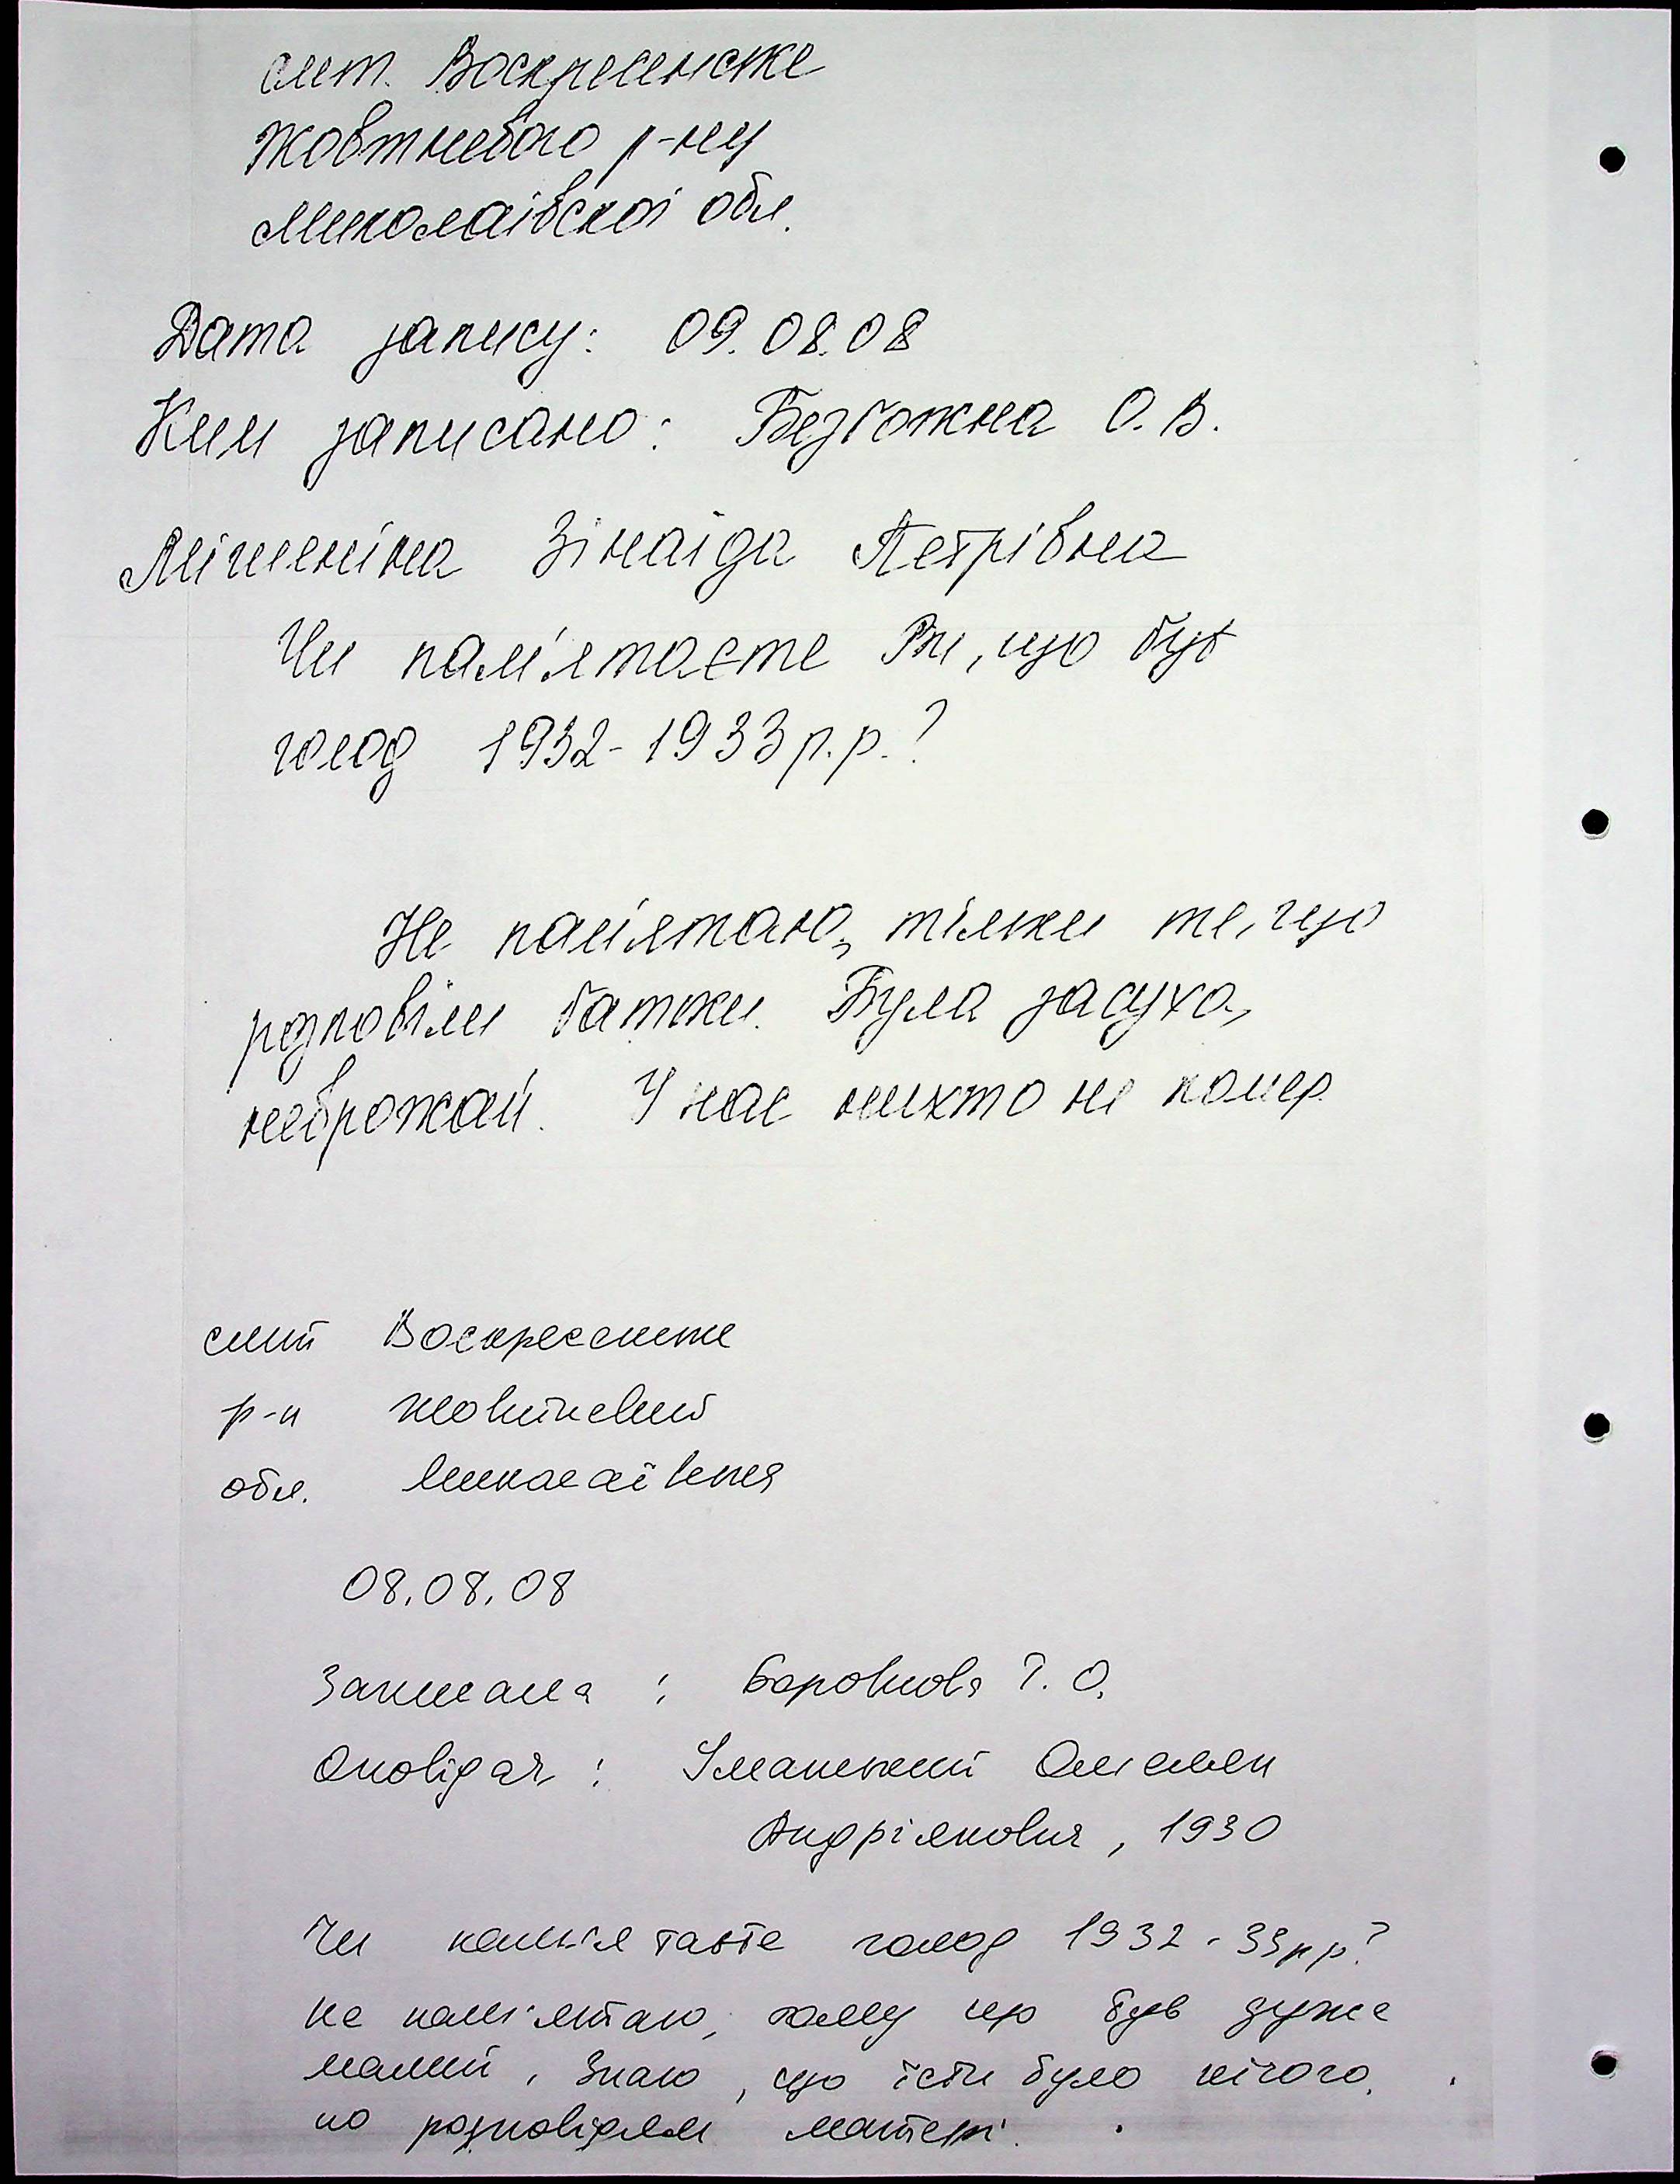 смт. Воскресенське
Жовтневого р-ну
Миколаївскої обл.
Дата запису: 09.08.08
Ким записано: Безбожна О.В.
Мішеніна Зінаїда Петрівна
Чи пам'ятаєте Ви, що був
голод 1932-1933 р.р.?
Не пам'ятаю, тільки те, що
розповіли батьки. Була засуха,
неврожай. У нас нихто не помер.
смт Воскресенське
р-н Жовтневий
обл. Миколаївська
08.08.08
Записала : Боровкова Т. О.
Оповідач : Уманський Омелян
Андріянович, 1930
Чи пам'ятаєте голод 1932-33 рр?
Не пам'ятаю, тому що був дуже
малий, Знаю, що їсти було нічого,
по розповідям матері.